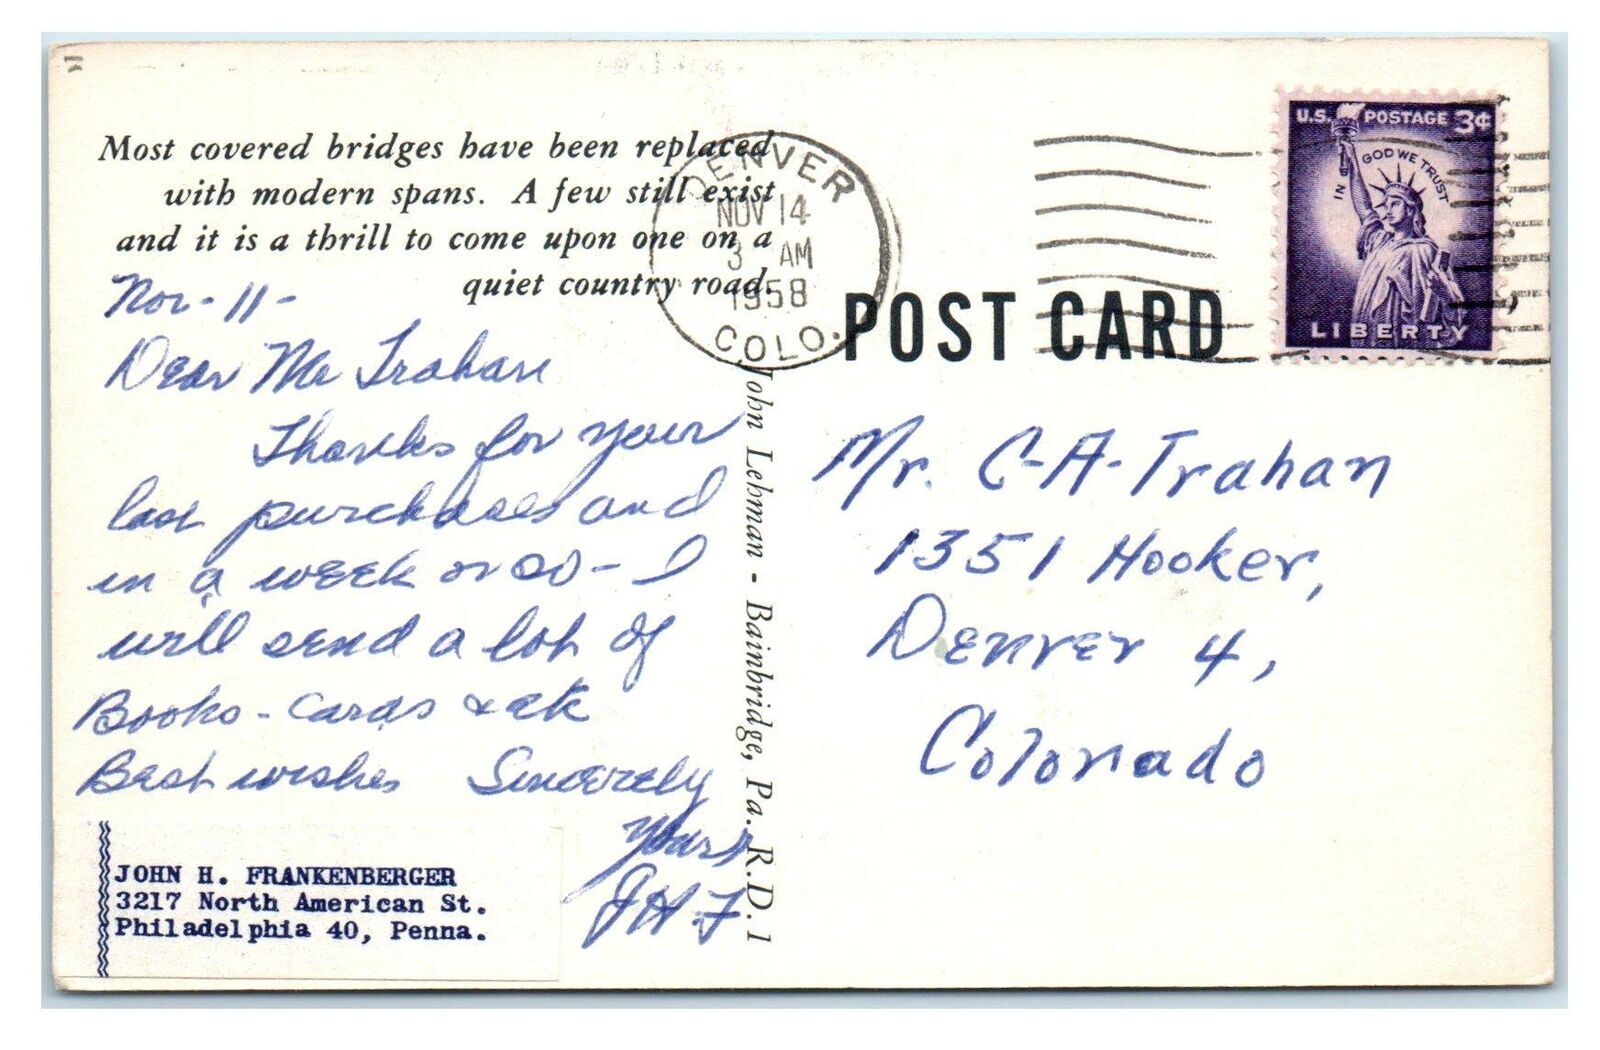 Most covered bridges have been replaced
with modern spans. A few still exist
and it is a thrill to come upon one on a
quiet country road.
Nov-11-
Dear Mr Trahan
Thanks for your
last purchases and
in a week or so - I
will send a lot of
Books - cards & etc
Best wishes Sincerely
Yours
JHF
JOHN H. FRANKENBERGER
3217 North American St.
Philadelphia 40, Penna.
John Lehman - Bainbridge, Pa. R.D. 1
DENVER
NOV 14
3 AM
1958
COLO.
POST CARD
U.S. POSTAGE 3¢
IN GOD WE TRUST
LIBERTY
Mr. C-A-Trahan
1351 Hooker,
Denver 4,
Colorado